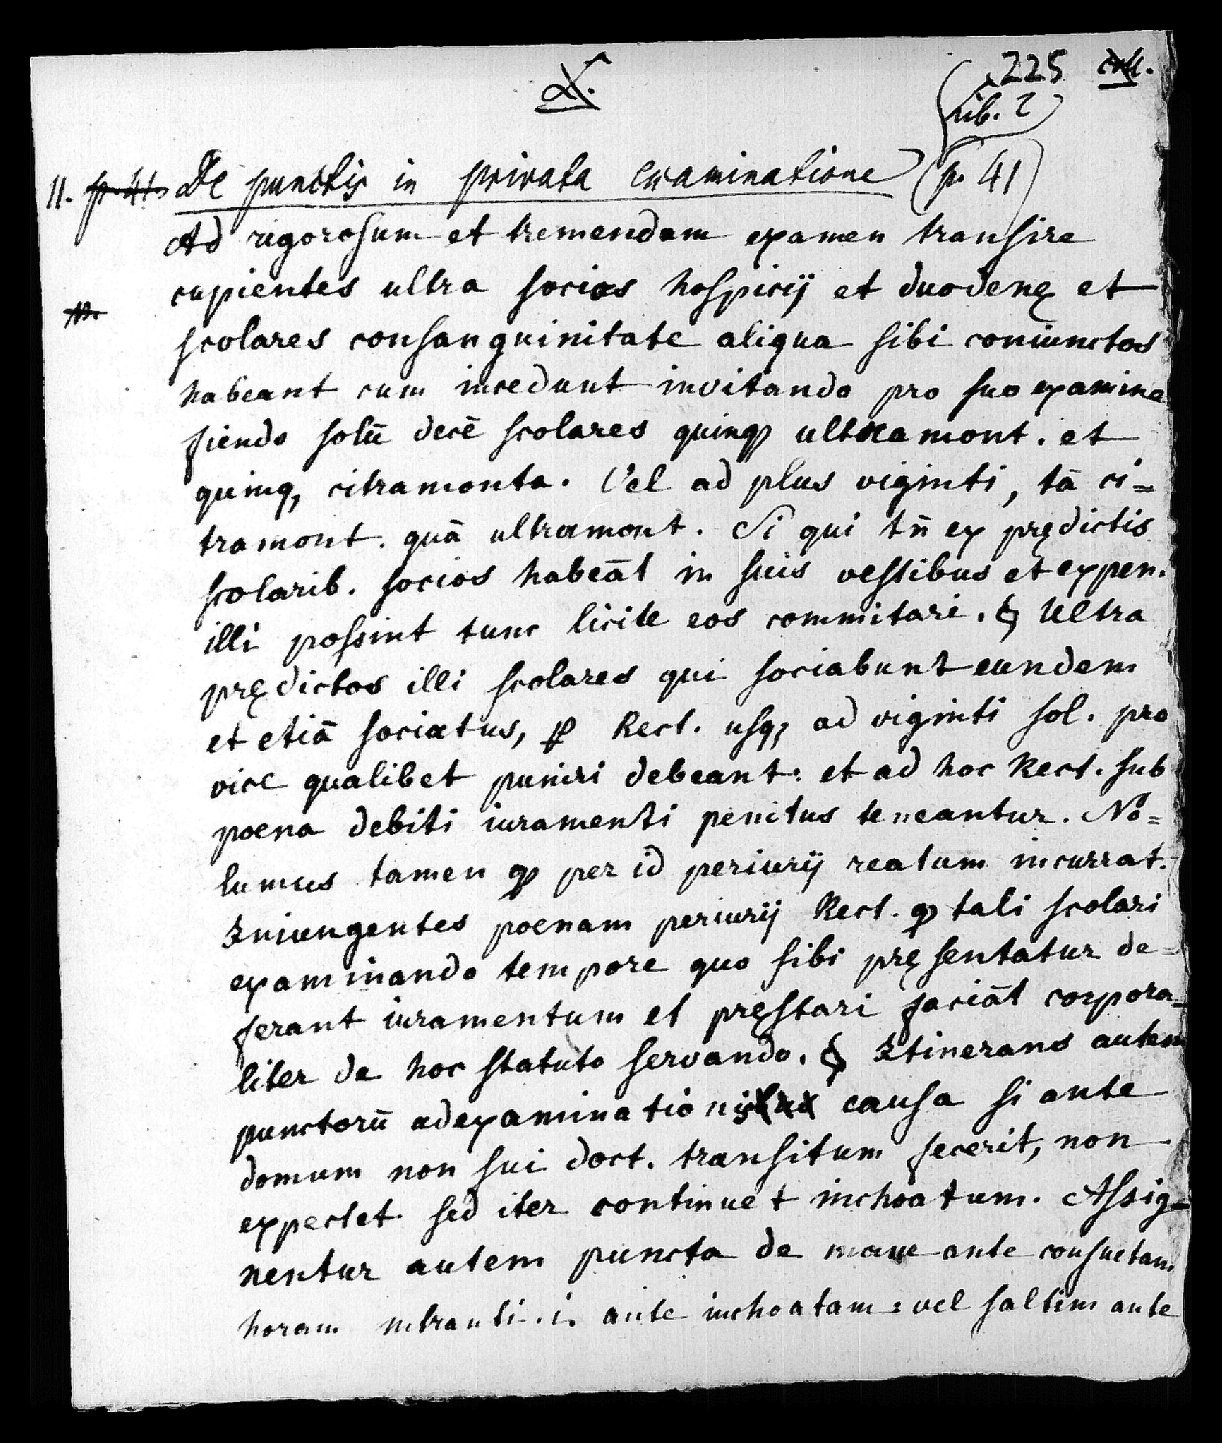 X.
225
Lib. 2
11. p. 41. De punctis in privata examinatione (p. 41)
Ad rigorosum et tremendam examen transire
cupientes ultra socios hospicij et duodenę et
scolares consanguinitate aliqua sibi coniunctos
habeant cum incedunt invitando pro suo examine
fiendo solū decē scolares quinq; ultramont. et
quinq, citramonta. Vel ad plus viginti, tā ci=
tramont. quā ultramont. Si qui tn̄ ex prędictis
scolarib. socios habeāt in suis vestibus et expen.
illi possint tunc licite eos commitari. § Ultra
prędictos illi scolares qui sociabunt eundem
et etiā sociatus, ꝑ Rect. usq; ad viginti sol. pro
vice qualibet puniri debeant: et ad hoc Rect. sub
poena debiti iuramenti penitus teneantur. No=
lumus tamen ꝙ per id periurij reatum incurrat.
Iniungentes poenam periurij Rect. ꝙ tali scolari
examinando tempore quo sibi pręsentatur de=
ferant iuramentum et pręstari faciāt corpora=
liter de hoc statuto servando. § Itinerans autem
punctorū adexaminationis causa si ante
domum non sui doct. transitum fecerit, non
expectet sed iter continuet inchoatum. Assig=
nentur autem puncta de mane ante consuetam
horam intranti. i. ante inchoatam: vel saltim ante